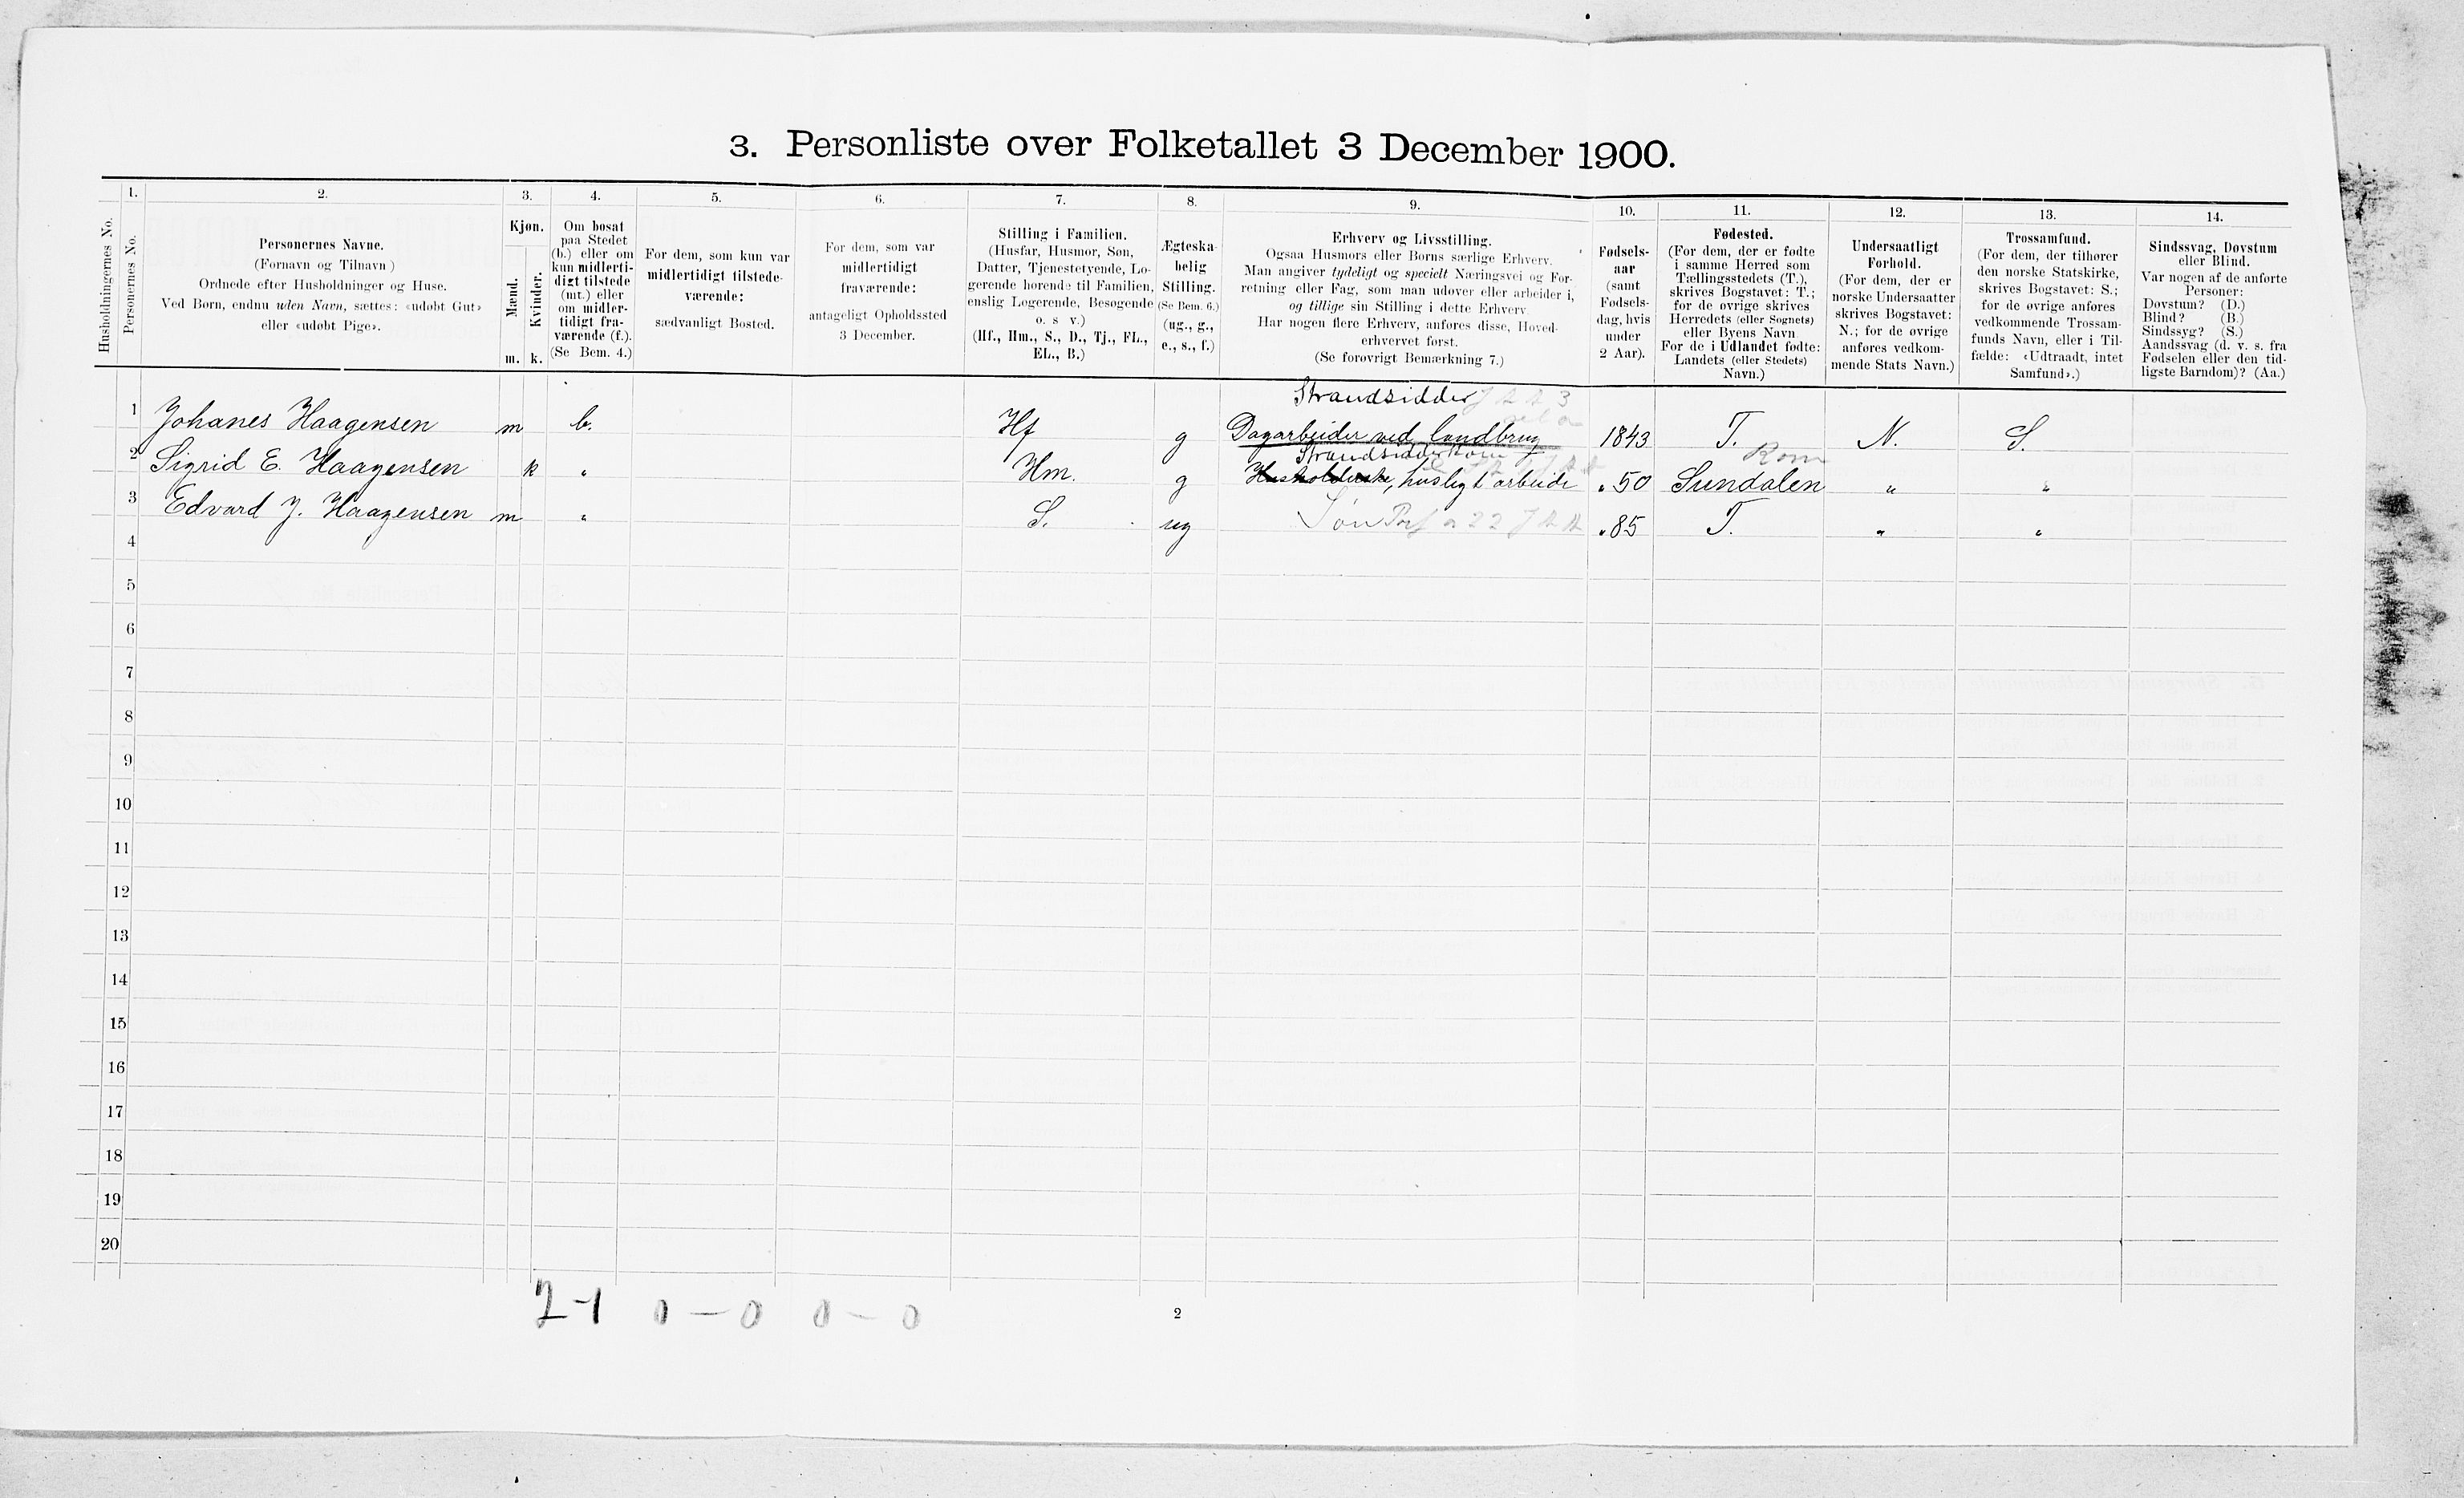 3. Personliste over Folketallet 3 December 1900.
Husholdningernes No.
1.
Personernes No.
2.
Personernes Navne.
(Fornavn og Tilnavn)
Ordnede efter Husholdninger og Huse.
Ved Børn, endnu uden Navn, sættes: «udøbt Gut»
eller «udøbt Pige».
3.
Kjøn.
Mænd.
Kvinder.
m. k.
4.
Om bosat
paa Stedet
(b.) eller om
kun midlerti-
digt tilstede
(mt.) eller
om midler-
tidigt fra-
værende (f.).
(Se Bem. 4.)
5.
For dem, som kun var
midlertidigt tilstede-
værende:
sædvanligt Bosted.
6.
For dem, som var
midlertidigt
fraværende:
antageligt Opholdssted
3 December.
7.
Stilling i Familien.
(Husfar, Husmor, Søn,
Datter, Tjenestetyende, Lo-
gerende hørende til Familien,
enslig Logerende, Besøgende
o. s v.)
(Hf., Hm., S., D., Tj., FL.,
EL., B.)
8.
Ægteska-
belig
Stilling.
(Se Bem. 6.)
(ug., g.,
e., s., f.)
9.
Erhverv og Livsstilling.
Ogsaa Husmors eller Børns særlige Erhverv.
Man angiver tydeligt og specielt Næringsvei og For-
retning eller Fag, som man udøver eller arbeider i,
og tillige sin Stilling i dette Erhverv.
Har nogen flere Erhverv, anføres disse, Hoved-
erhvervet først.
(Se forøvrigt Bemærkning 7.)
10.
Fødsels-
aar
(samt
Fødsels-
dag, hvis
under
2 Aar).
11.
Fødested.
(For dem, der er fødte
i samme Herred som
Tællingsstedets (T.),
skrives Bogstavet: T.;
for de øvrige skrives
Herredets (eller Sognets)
eller Byens Navn
For de i Udlandet fødte:
Landets (eller Stedets)
Navn.)
12.
Undersaatligt
Forhold.
(For dem, der er
norske Undersaatter
skrives Bogstavet:
N.; for de øvrige
anføres vedkom-
mende Stats Navn.)
13.
Trossamfund.
(For dem, der tilhører
den norske Statskirke,
skrives Bogstavet: S.;
for de øvrige anføres
vedkommende Trossam-
funds Navn, eller i Til-
fælde: «Udtraadt, intet
Samfund».)
14.
Sindssvag, Døvstum
eller Blind.
Var nogen af de anførte
Personer:
Døvstum? (D.)
Blind? (B.)
Sindssyg? (S.)
Aandssvag (d. v. s. fra
Fødselen eller den tid-
ligste Barndom)? (Aa.)
Strandsidder
1 Johanes Haagensen m b. Hf g Dagarbeider ved landbrug 1843 T. N. S.
Strandsidderkone Rom
2 Sigrid E. Haagensen k " Hm. g Husholderske, husligt arbeide " 50 Sundalen " "
3 Edvard J. Haagensen m " S. ug Søn " 85 T. " "
4
5
6
7
8
9
10
11
12
13
14
15
16
17
18
19
20
2-1 0-0 0-0
2